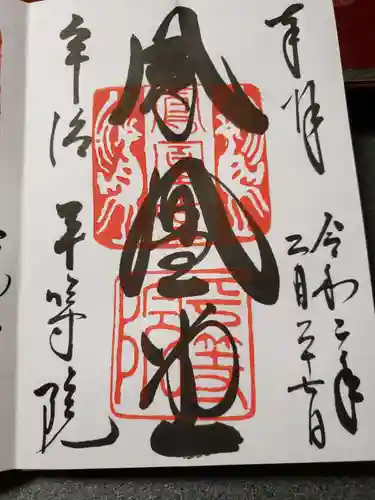 奉拝
令和二年
二月二十七日
鳳凰堂
鳳凰
平等院
宇治 平等院